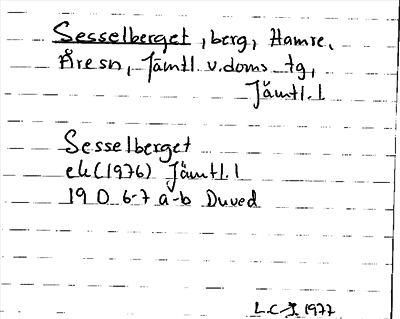 Sesselberget, berg, Hamre,
Åre sn, Jämtl. v. doms. tg,
Jämtl. l
Sesselberget
ek (1976) Jämtl. l
19 D 6-7 a-b Duved
L.C-J. 1977